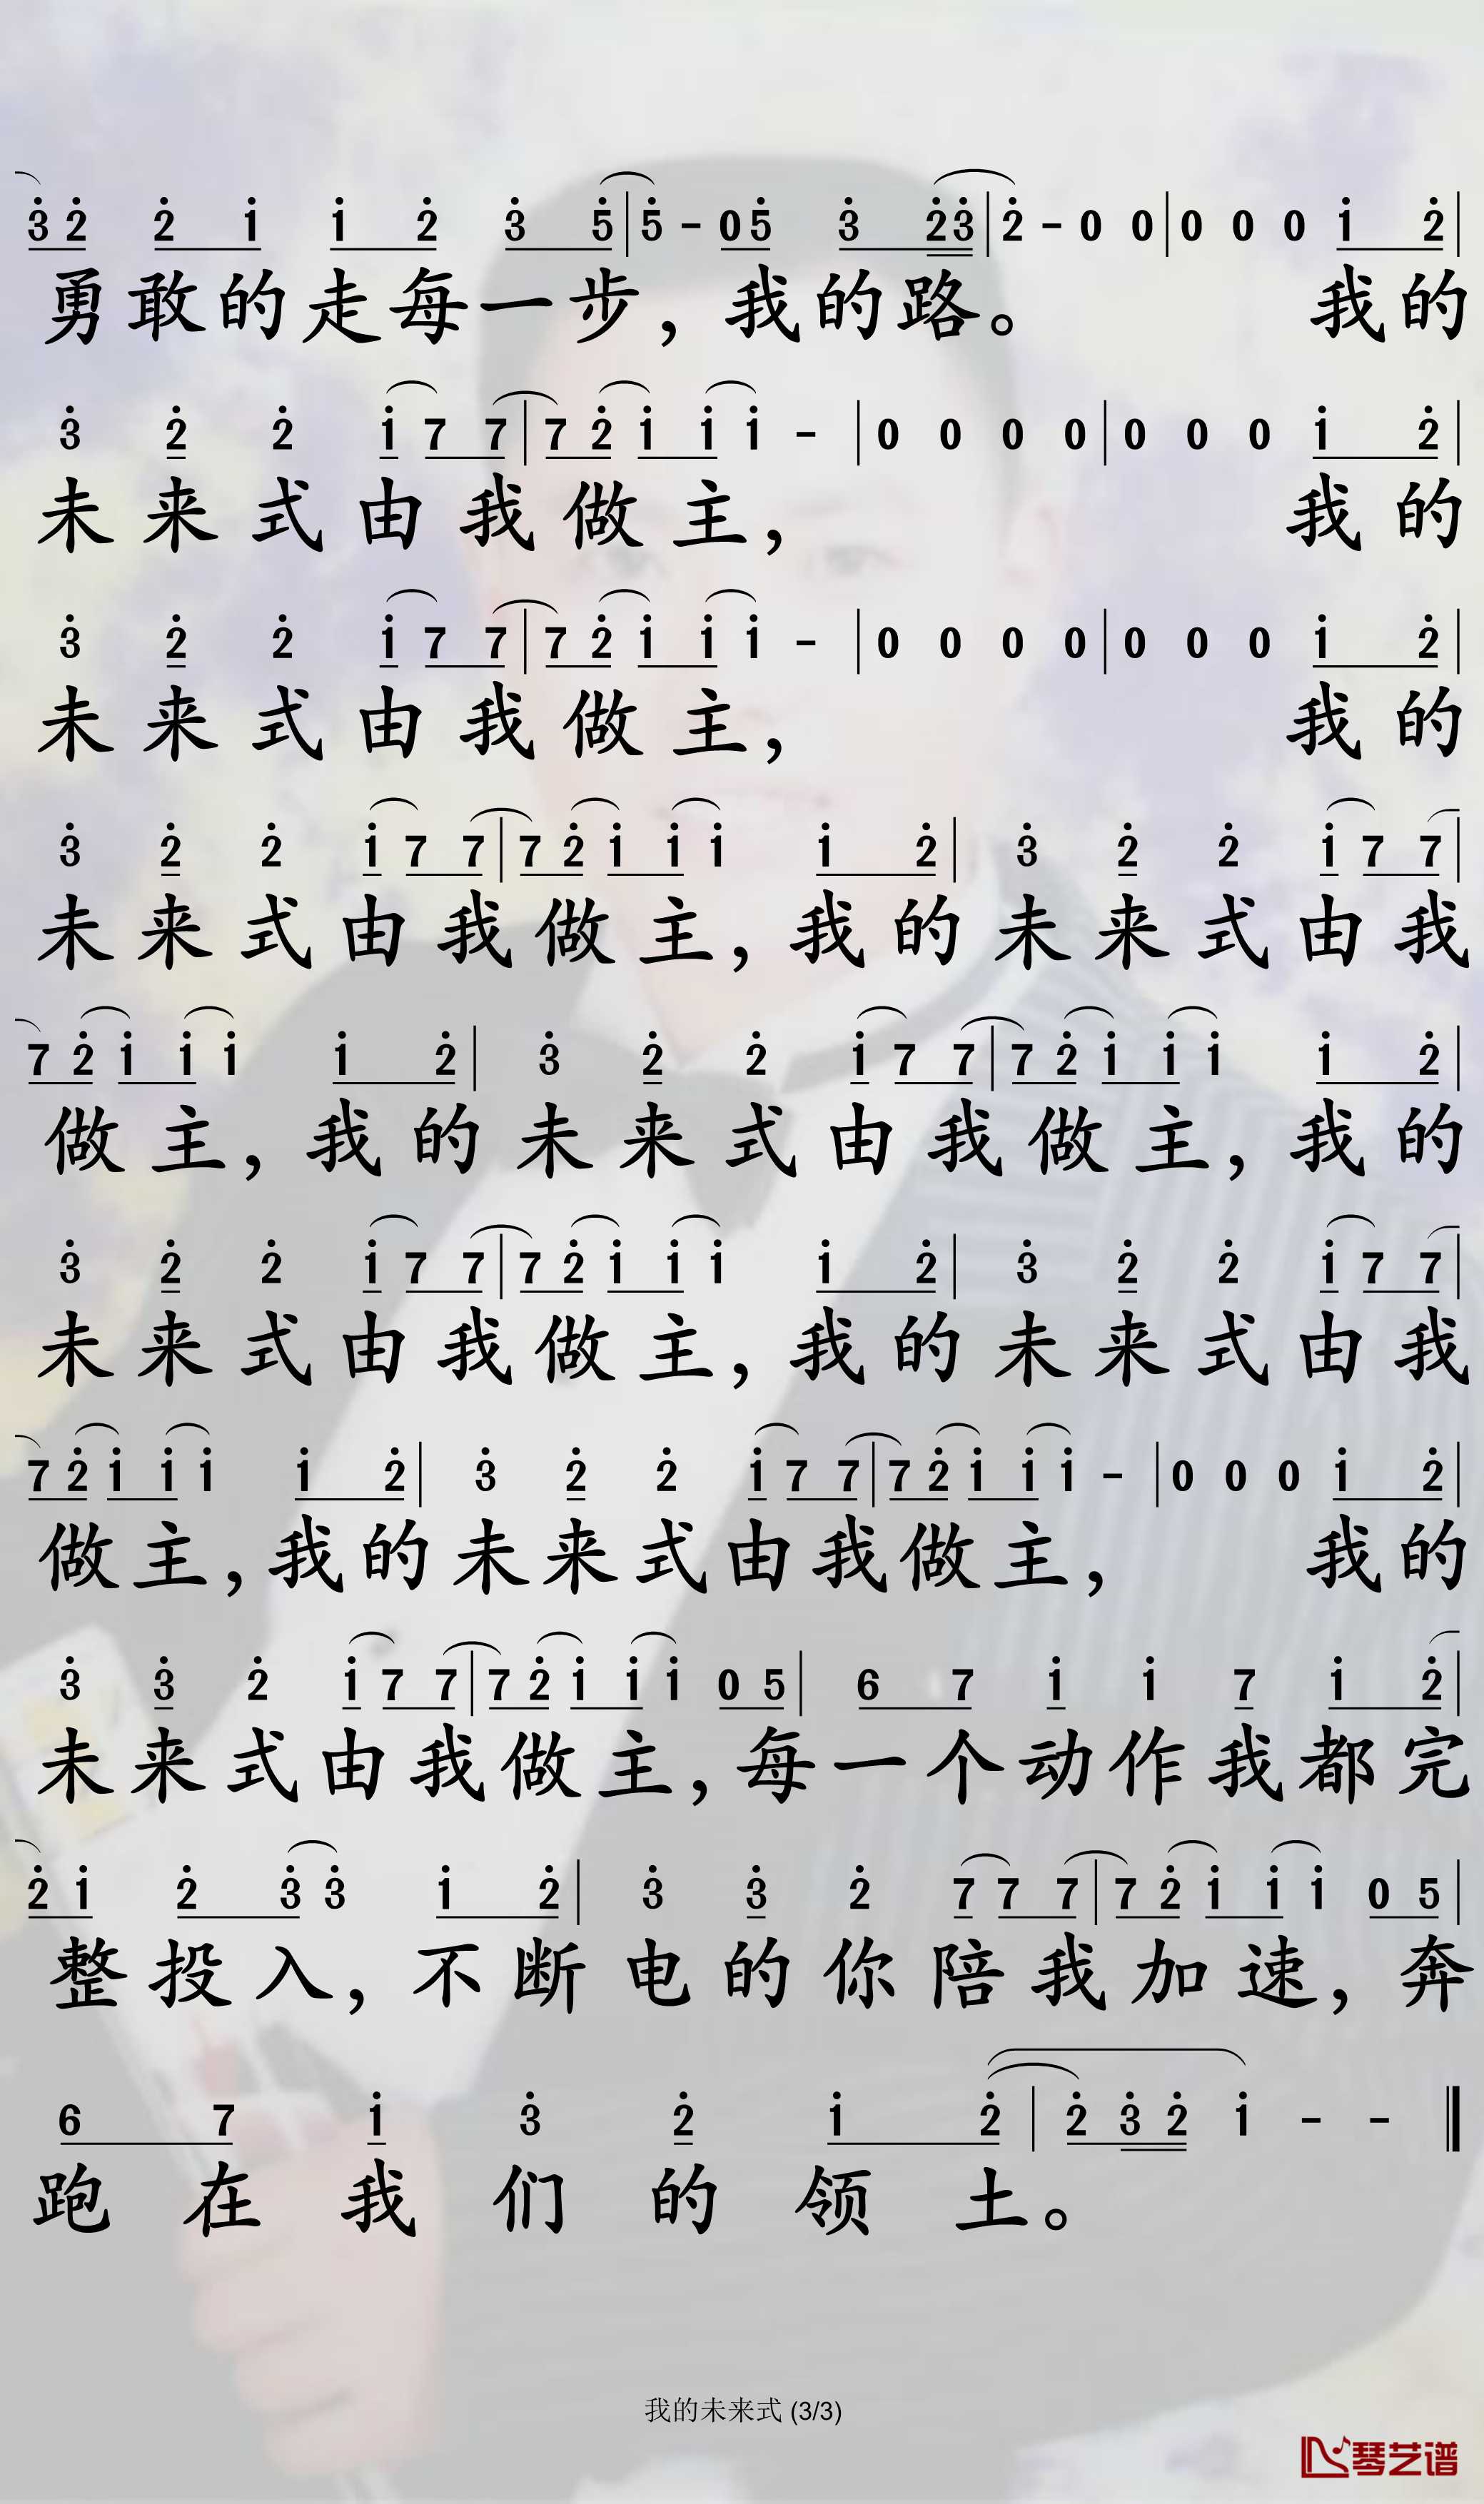 3̇ 2̇ 2̇ 1̇ 1̇ 2̇ 3̇ 5̇ | 5̇ - 0 5̇ 3̇ 2̇ 3̇ | 2̇ - 0 0 | 0 0 0 1̇ 2̇ |
勇敢的走每一步，我的路。 我的
3̇ 2̇ 2̇ 1̇ 7 7 | 7 2̇ 1̇ 1̇ 1̇ - | 0 0 0 0 | 0 0 0 1̇ 2̇ |
未来式由我做主， 我的
3̇ 2̇ 2̇ 1̇ 7 7 | 7 2̇ 1̇ 1̇ 1̇ - | 0 0 0 0 | 0 0 0 1̇ 2̇ |
未来式由我做主， 我的
3̇ 2̇ 2̇ 1̇ 7 7 | 7 2̇ 1̇ 1̇ 1̇ 1̇ 2̇ | 3̇ 2̇ 2̇ 1̇ 7 7 |
未来式由我做主，我的未来式由我
7 2̇ 1̇ 1̇ 1̇ 1̇ 2̇ | 3̇ 2̇ 2̇ 1̇ 7 7 | 7 2̇ 1̇ 1̇ 1̇ 1̇ 2̇ |
做主，我的未来式由我做主，我的
3̇ 2̇ 2̇ 1̇ 7 7 | 7 2̇ 1̇ 1̇ 1̇ 1̇ 2̇ | 3̇ 2̇ 2̇ 1̇ 7 7 |
未来式由我做主，我的未来式由我
7 2̇ 1̇ 1̇ 1̇ 1̇ 2̇ | 3̇ 2̇ 2̇ 1̇ 7 7 | 7 2̇ 1̇ 1̇ 1̇ - | 0 0 0 1̇ 2̇ |
做主，我的未来式由我做主， 我的
3̇ 3̇ 2̇ 1̇ 7 7 | 7 2̇ 1̇ 1̇ 1̇ 0 5 | 6 7 1̇ 1̇ 7 1̇ 2̇ |
未来式由我做主，每一个动作我都完
2̇ 1̇ 2̇ 3̇ 3̇ 1̇ 2̇ | 3̇ 3̇ 2̇ 7 7 7 | 7 2̇ 1̇ 1̇ 1̇ 0 5 |
整投入，不断电的你陪我加速，奔
6 7 1̇ 3̇ 2̇ 1̇ 2̇ | 2̇ 3̇ 2̇ 1̇ - - ‖
跑在我们的领土。
我的未来式 (3/3)
琴艺谱